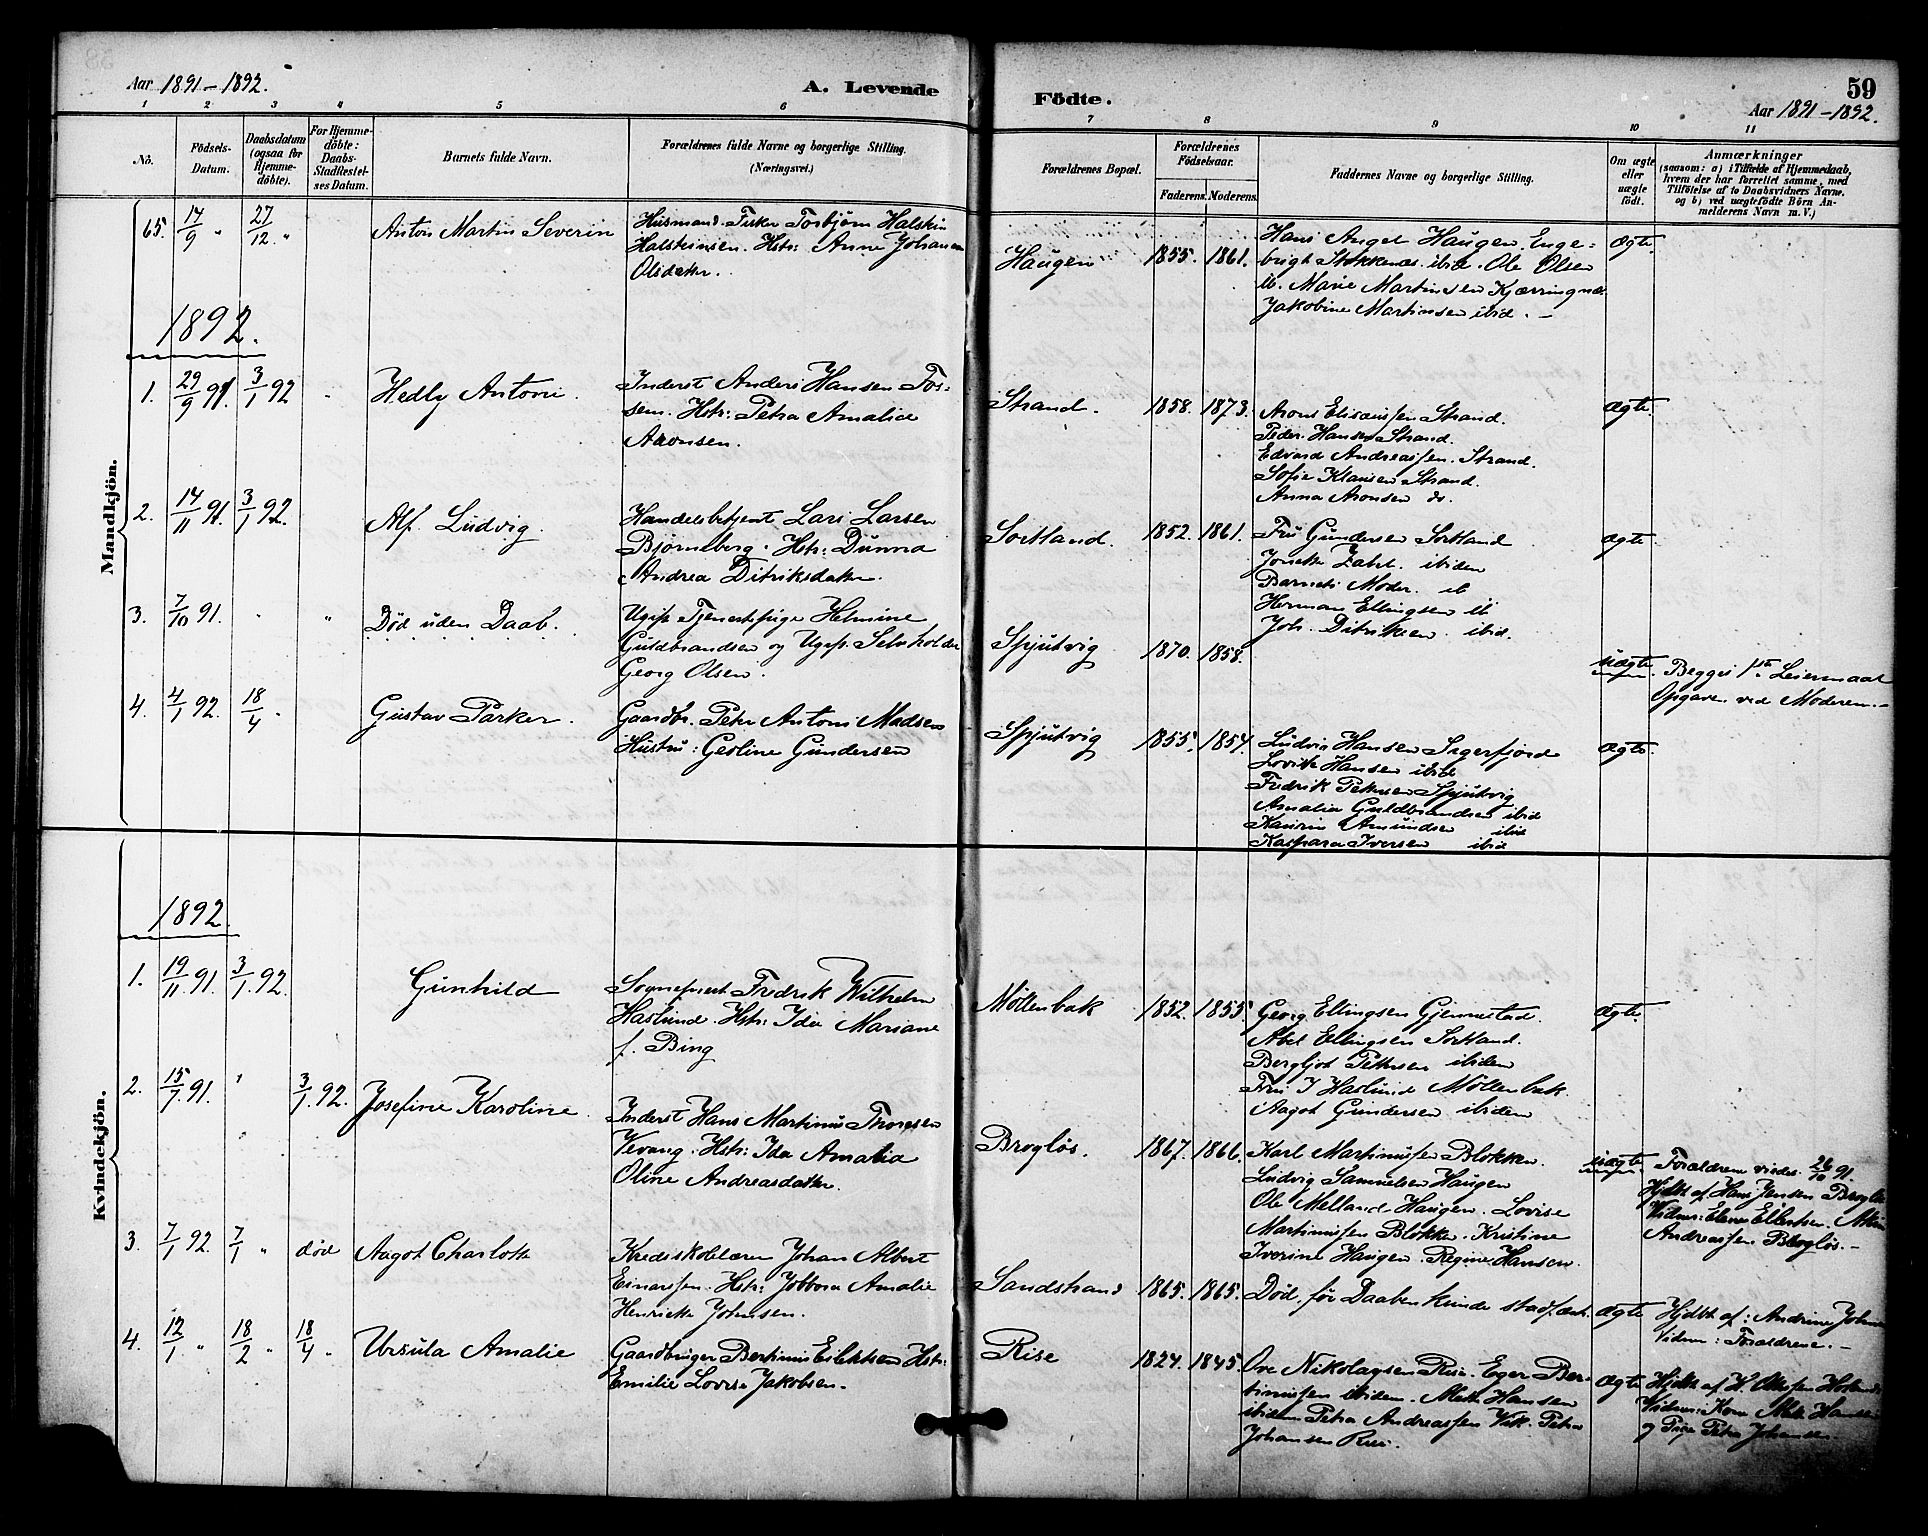 Aar 1891-1892.
A. Levende
Födte.
59
Aar 1891-1892.
1 2 3 4 5 6 7 8 9 10 11
No.
Födsels-
Datum.
Daabsdatum
(ogsaa for
Hjemme-
döbte).
For Hjemme-
döbte:
Daabs-
Stadfæstel-
ses Datum.
Barnets fulde Navn.
Forældrenes fulde Navne og borgerlige Stilling.
(Næringsvei.)
Forældrenes Bopæl.
Forældrenes
Födselsaar.
Faderens. Moderens.
Faddernes Navne og borgerlige Stilling.
Om ægte
eller
uægte
födt.
Anmærkninger
(saasom: a) i Tilfælde af Hjemmedaab,
hvem der har forrettet samme, med
Tilföielse af to Daabsvidners Navne,
og b) ved uægtefödte Börn An-
melderens Navn m. V.)
Mandkjön.
65. 14/9 " 27/12 "
Anton Martin Severin
Husmand. Fisker Torbjörn Halstein
Halsteinsen. Hstr: Anne Johanna
Olsdatter.
Haugen 1855. 1861.
Hans Angel Haugen. Enge-
brigt Stokkenes ibid. Ole Olsen
ib. Marie Martinsen Kjærringnes.
Jakobine Martinsen ibid. -
Ægte.
1892.
1. 29/9 91. 3/1 92 "
Hedly Antoni.
Inderst Anders Hansen Fos-
sem. Hstr: Petra Amalia
Aronsen.
Strand. 1858. 1873.
Arons Elisæussen Strand.
Peder Hansen Strand.
Edvard Andreassen. Strand.
Sofie Klausen Strand.
Anna Aronsen do.
ægte.
2. 14/11 91. 3/1 92.
Alf Ludvig.
Handelsbetjent Lars Larsen
Bjørnsberg. Hstr: Dunna
Andrea Ditriksdatter.
Sortland. 1852. 1861.
Fru Gundersen Sortland
Jonette Zahl. ibiden
Barnets Moder. ib
Herman Ellingsen ib
Joh. Ditriksen. ibid.
ægte.
3. 7/10 91. " "
Död uden Daab.
Ugift Tjenestepige Helmine
Guldbrandsen og Ugift Selvholder
Georg Olsen.
Spjutvig 1870. 1858.
uægte.
Begges 1ste Leiermaal
Opgave ved Moderen. -
4. 4/1 92. 18/4 "
Gustav Parker.
Gaardbr. Peter Antoni Madsen
Hustru: Gesline Gundersen
Spjutvig 1855. 1854.
Ludvig Hansen Sigerfjord
Lovise Hansen ibid
Fredrik Petersen Spjutvig
Amalia Guldbrandsen ibid
Kaurin Amundsen ibid
Kaspara Iversen ibid
ægte.
Kvindekjön.
1892.
1. 19/11 91. 3/1 92.
Gunhild
Sogneprest Fredrik Wilhelm
Haslund. Hstr: Ida Mariane
f. Bing
Möllenbak 1852. 1855.
Georg Ellingsen Gjennestad.
Abel Ellingsen Sortland.
Bergljot Pettersen ibiden
Fru I Haslund Möllenbak.
Aagot Gundersen ibiden
ægte.
2. 15/7 91. " 3/1 92.
Josefine Karoline.
Inderst Hans Martinus Thoresen
Vevang. Hstr: Ida Amalia
Oline Andreasdatter.
Brogløs. 1867. 1866.
Karl Martinussen Blokken.
Ludvig Samuelsen Haugen
Ole Melland Haugen. Lovise
Martinussen Blokken. Kristine
Iverine Haugen. Regine Hansen.
uægte.
Forældrene viedes 26/10 91.
Hjdbt af Hans Jensen Brogløs
Vidner: Elene Ellertsen.
Andreassen Brogløs. -
3. 7/1 92. 7/1 " död
Aagot Charlotte
Kredsskolelærer Johan Albert
Einarssen. Hstr: Jobbora Amalie
Henriette Johnsen.
Sandstrand 1865. 1865.
Död, før Daaben kunde stadfæst.
ægte
Hjdbt af: Andrine Johns
Vidner: Forældrene. -
4. 12/1 " 18/2 " 18/4 "
Ursula Amalie
Gaardbruger Bertinus Eilertsen Hstr:
Emilie Lovise Jakobsen.
Rise 1824. 1845.
Ove Nikolaysen Rise. Eger Ber-
tinussen ibiden. Mette Hansen
ibiden Petra Andreassen Vik. Petra
Johansen Rise.
ægte
Hjdbt af
Vidner: Kone Mette Hansen
og Pige Petra Johansen